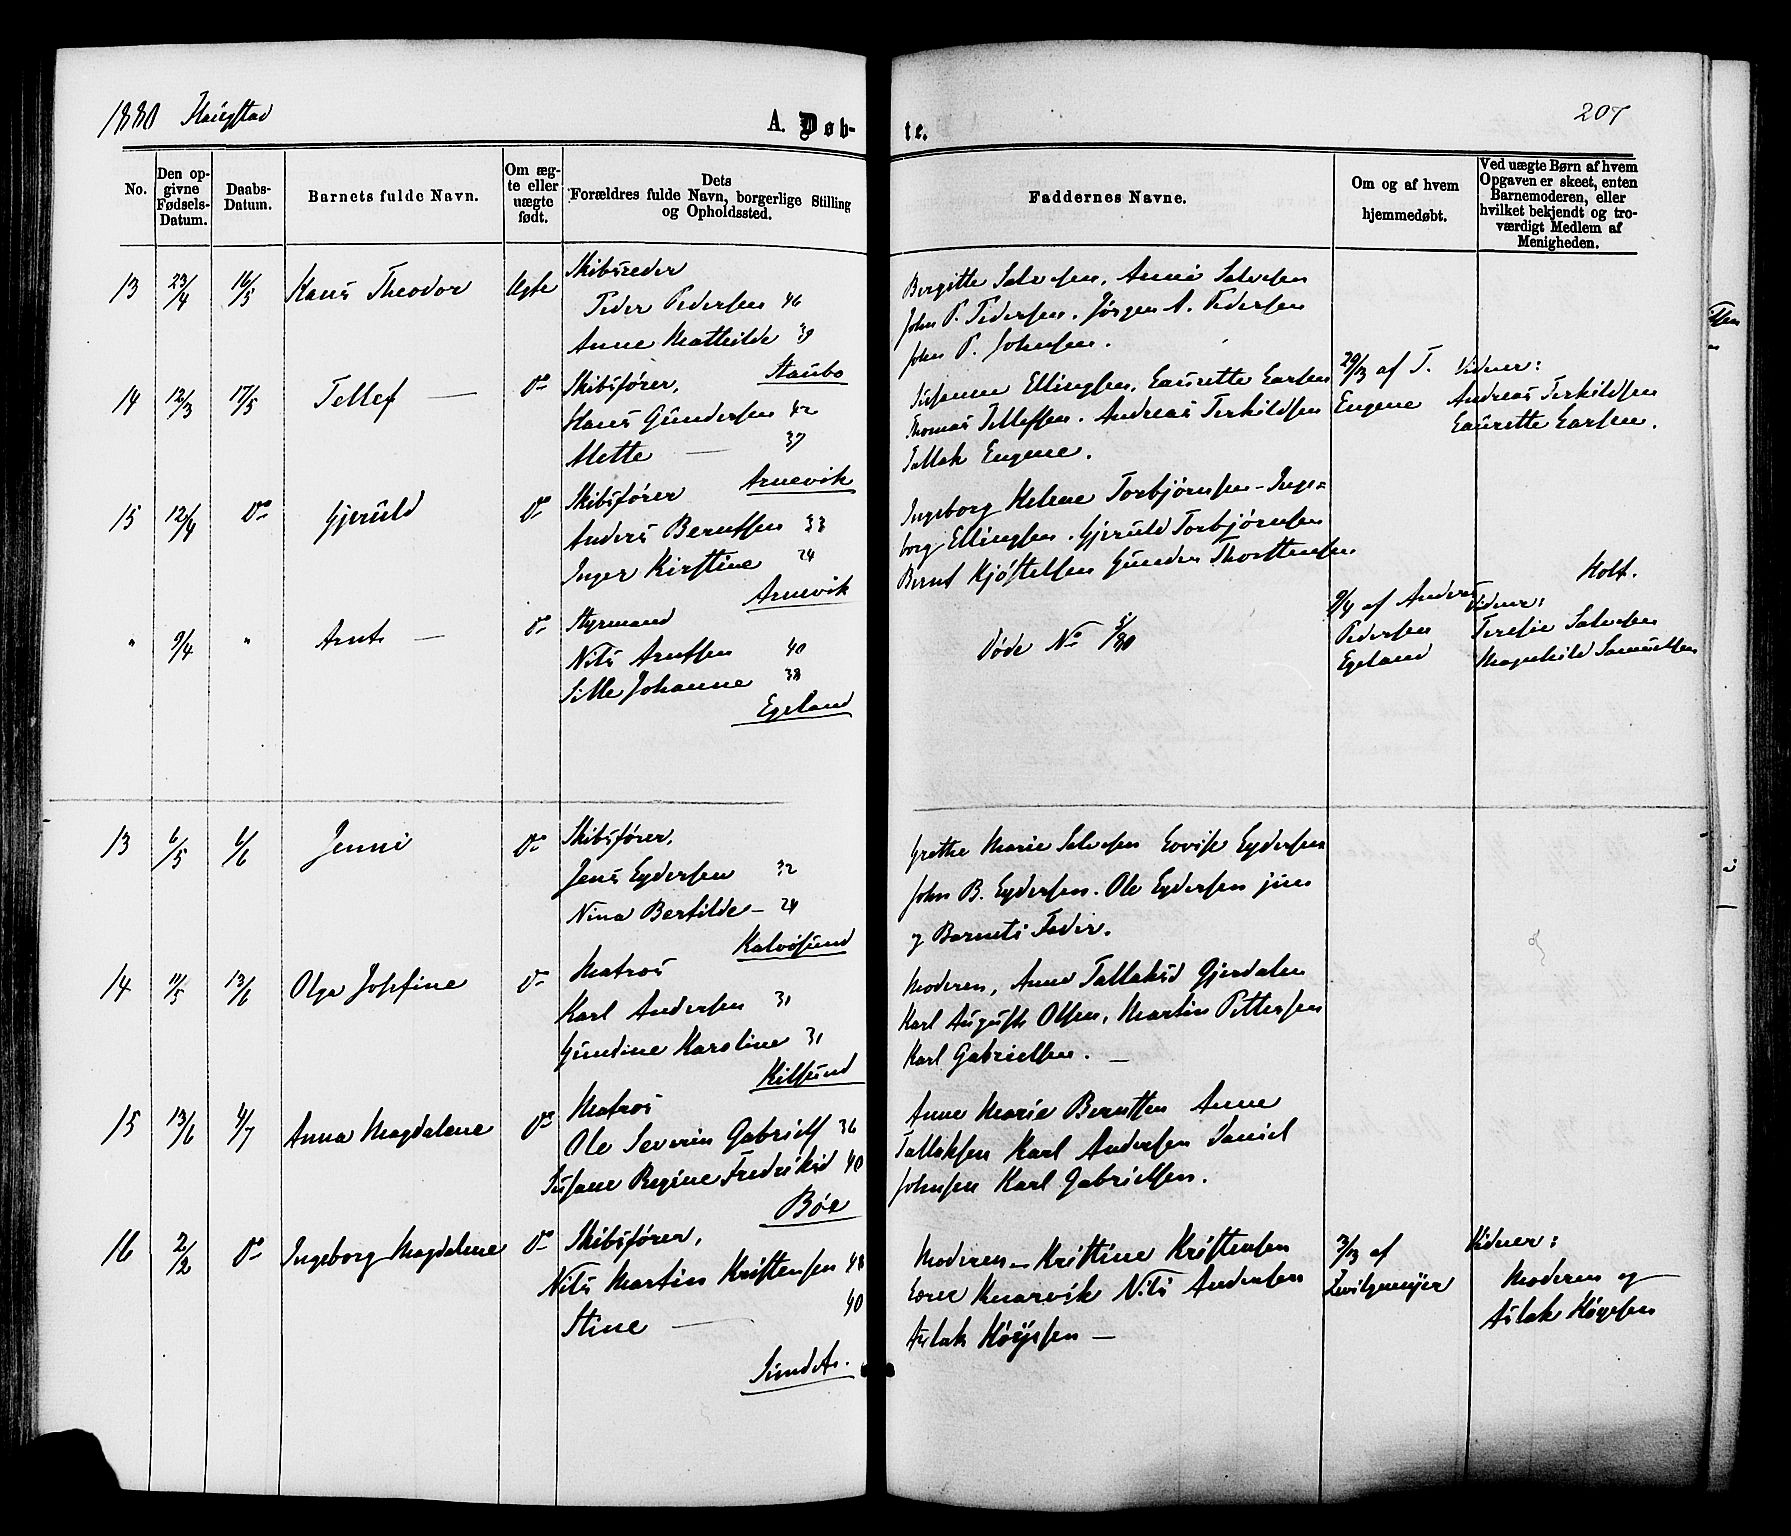 1880 Haugstad
A. Døb-
te.
207
No.
Den op-
givne
Fødsels-
Datum.
Daabs-
Datum.
Barnets fulde Navn.
Om æg-
te eller
uægte
født.
Dets
Forældres fulde Navn, borgerlige Stilling
og Opholdssted.
Faddernes Navne.
Om og af hvem
hjemmedøbt.
Ved uægte Børn af hvem
Opgaven er skeet, enten
Barnemoderen, eller
hvilket bekjendt og tro-
værdigt Medlem af
Menigheden.
13 23/4 16/5 Hans Theodor Ægte Skibsreder
Peder Pedersen 46
Anne Mathilde 39
Staubo
Bergitte Salvesen, Anne Salvesen
John P. Pedersen, Jørgen A. Pedersen
John P. Johnsen.
14 12/3 17/5 Tellef — Do Skibsfører,
Hans Gundersen 42
Mette — 37
Arnevik
Susanne Ellingsen, Laurette Larsen
Thomas Tellefsen. Andreas Terkildsen
Tallak Engene.
29/3 af T.
Engene
Vidner:
Andreas Terkildsen
Laurette Larsen.
15 12/4 Do Gjeruld Do Skibsfører
Anders Berntsen 33
Inger Kirstine 24
Arnevik
Ingeborg Helene Torbjørnsen - Inge=
borg Ellingsen. Gjeruld Torbjørnsen
Bernt Kjøstelsen Gunder Thorstensen
Holt.
" 9/4 " Arnt — Do Styrmand
Nils Arntsen 40
Sille Johanne 38
Egeland
Døde No 5/80
9/4 af Anders
Pedersen
Egeland
Vidner:
Teresie Salvesen
Magnhild Samuelsen
13 6/5 6/6 Jenni Do Skibsfører,
Jens Eydersen 32
Nina Bertilde — 24
Kalvøsund
Grethe Marie Salvesen Lovise Eydersen
John B. Eydersen. Ole Eydersen jun
og Barnets Fader.
14 11/5 13/6 Olga Josefine Do Matros
Karl Andersen 31
Gundine Karoline 31
Kilsund
Moderen, Anne Tallaksd Gjerdalen
Karl August Olsen, Martin Pettersen
Karl Gabrielsen. —
15 13/6 4/7 Anna Magdalene Do Matros
Ole Severin Gabriels 36
Susane Regine Fredriksd 40
Bøe
Anne Marie Berntsen Anne
Tallaksen Karl Andersen Daniel
Johnsen Karl Gabrielsen.
16 2/2 Do Ingeborg Magdalene Do Skibsfører,
Nils Martin Kristensen 48
Stine — 40
Sundet.
Moderen — Kristine Kristensen
Lorel Knarvik Nils Andersen
Aslak Høyesen —
3/3 af
Zwilgmeyer
Vidner:
Moderen og
Aslak Høyesen